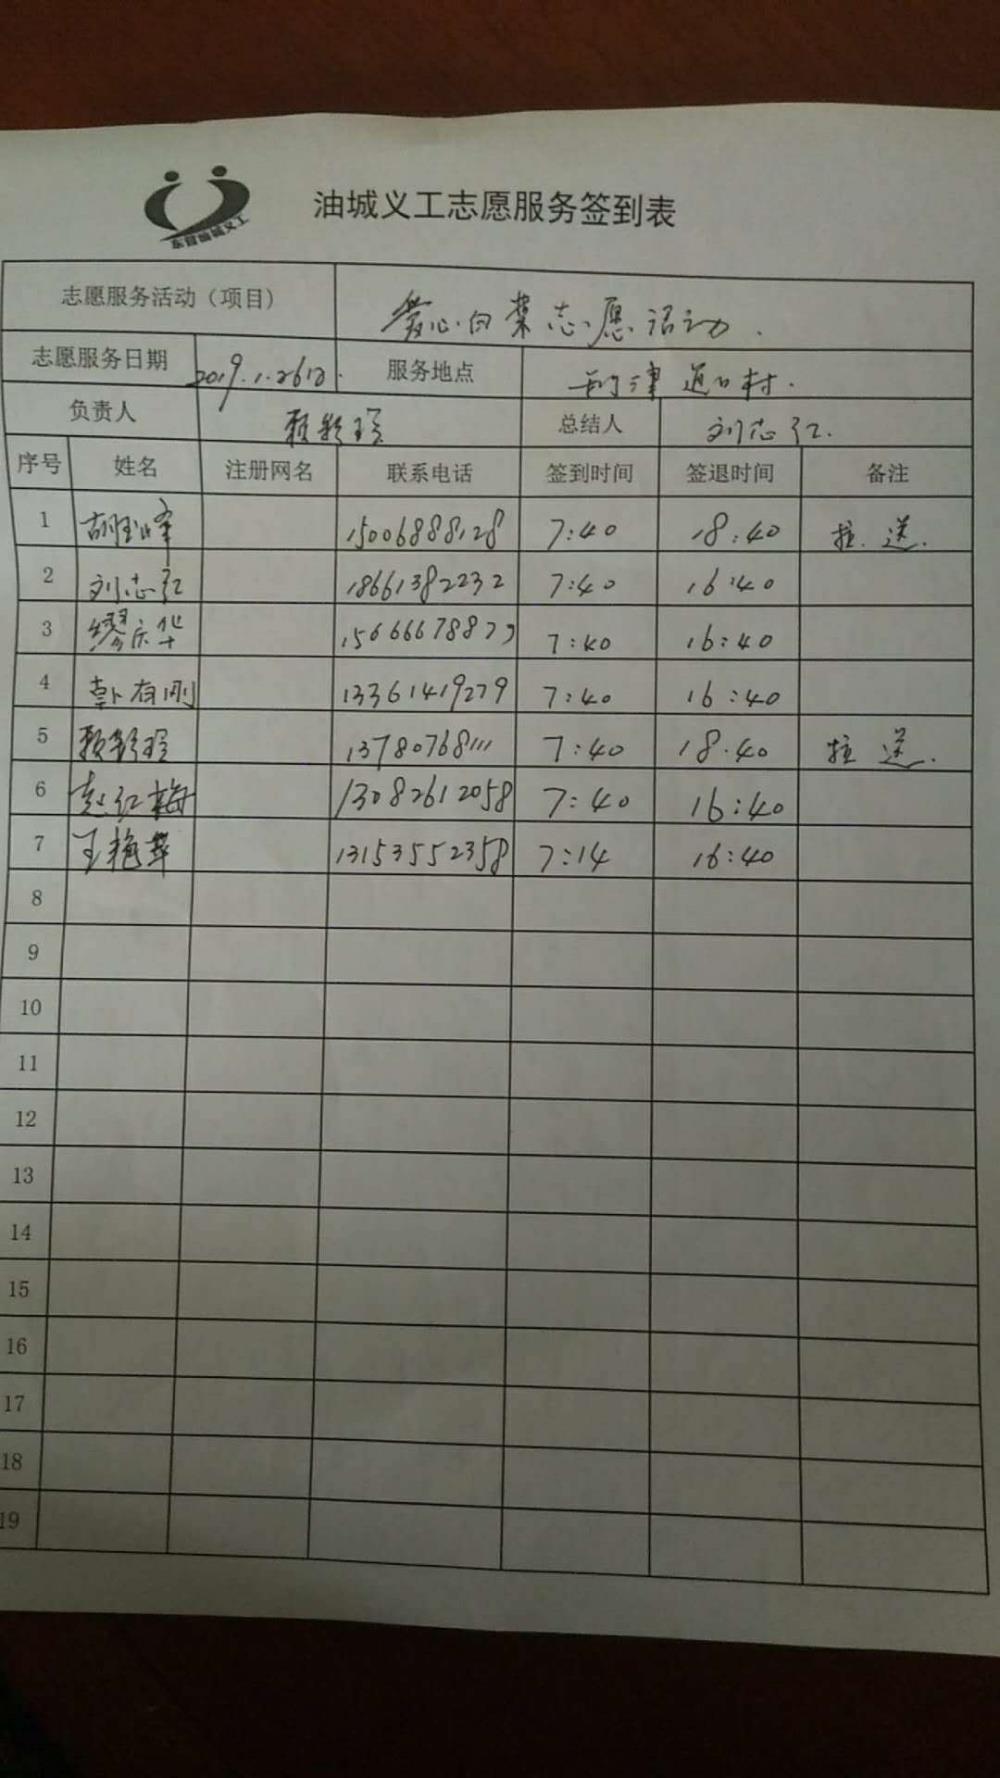 东营油城义工
油城义工志愿服务签到表
志愿服务活动（项目） 爱心白菜志愿活动.
志愿服务日期 2019.1.26日. 服务地点 利津 道口村.
负责人 总结人 刘志红.
序号 姓名 注册网名 联系电话 签到时间 签退时间 备注
1 15006888128 7:40 18:40 拉 送.
2 刘志红 18661382232 7:40 16:40
3 缪庆华 15666678879 7:40 16:40
4 有刚 13361419279 7:40 16:40
5 13780768111 7:40 18.40 拉 送.
6 赵红梅 13082612058 7:40 16:40
7 王艳萍 13153552358 7:14 16:40
8
9
10
11
12
13
14
15
16
17
18
19